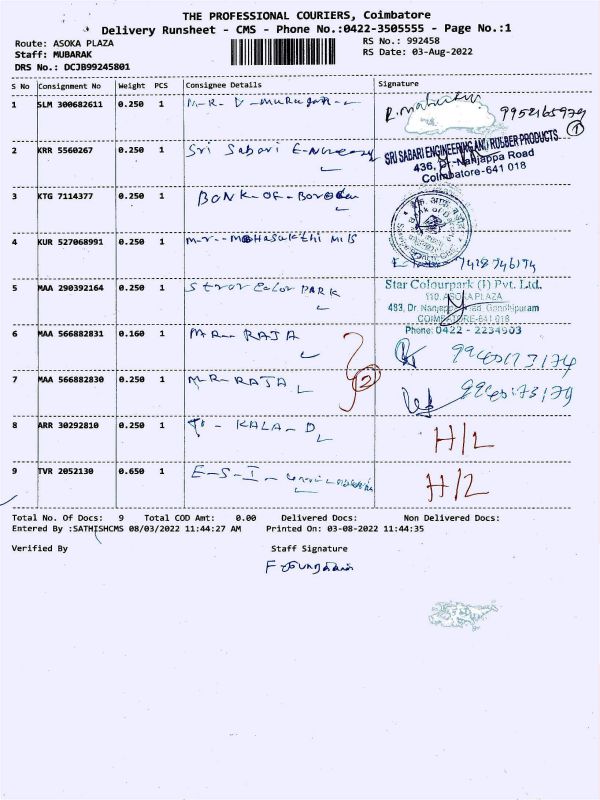 THE PROFESSIONAL COURIERS, Coimbatore
Delivery Runsheet - CMS - Phone No.:0422-3505555 - Page No.:1
Route: ASOKA PLAZA RS No.: 992458
Staff: MUBARAK RS Date: 03-Aug-2022
DRS No.: DCJB99245801
S No Consignment No Weight PCS Consignee Details Signature
1 SLM 300682611 0.250 1 M-R- V-Murugan
2 KRR 5560267 0.250 1 Sri Sabari
SRI SABARI ENGINEERING AND RUBBER PRODUCTS
436, Dr. Nanjappa Road
Coimbatore-641 018
3 KTG 7114377 0.250 1 BONK-OF-Boroda
4 KUR 527068991 0.250 1 M-r- Mahasakthi Mills
5 MAA 290392164 0.250 1 Star Color PARK
Star Colourpark (I) Pvt. Ltd.
110, ASOKA PLAZA
483, Dr. Nanjappa Road, Gandhipuram
COIMBATORE-641 018
Phone: 0422 - 2234903
6 MAA 566882831 0.160 1 M-R- RAJA
2
7 MAA 566882830 0.250 1 M-R-RAJA
8 ARR 30292810 0.250 1 KALA-D H/L
9 TVR 2052130 0.650 1 E-S-I- H/L
Total No. Of Docs: 9 Total COD Amt: 0.00 Delivered Docs: Non Delivered Docs:
Entered By :SATHISHCMS 08/03/2022 11:44:27 AM Printed On: 03-08-2022 11:44:35
Verified By Staff Signature